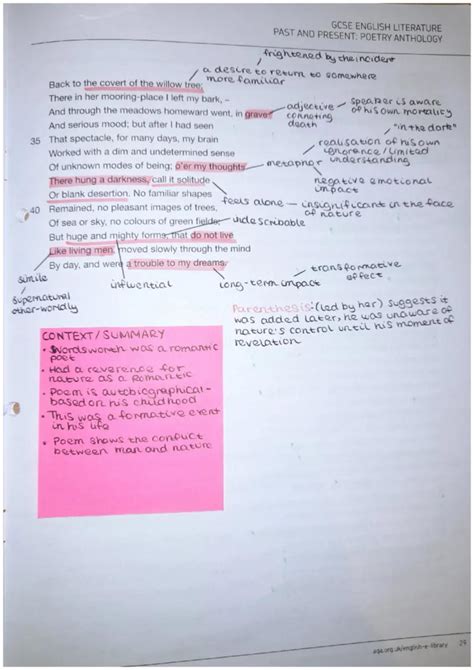 GCSE ENGLISH LITERATURE
PAST AND PRESENT: POETRY ANTHOLOGY
frightened by the incident
a desire to return to somewhere
more familiar
Back to the covert of the willow tree;
There in her mooring-place I left my bark, –
And through the meadows homeward went, in grave
And serious mood; but after I had seen
adjective
connoting
death
speaker is aware
of his own mortality
"in the dark"
35 That spectacle, for many days, my brain
Worked with a dim and undetermined sense
Of unknown modes of being; o'er my thoughts
There hung a darkness, call it solitude
Or blank desertion. No familiar shapes
metaphor
realisation of his own
ignorance / limited
understanding
negative emotional
impact
feels alone - insignificant in the face
of nature
40 Remained, no pleasant images of trees,
Of sea or sky, no colours of green fields;
But huge and mighty forms, that do not live
Like living men, moved slowly through the mind
By day, and were a trouble to my dreams.
undescribable
simile
supernatural
other-worldly
influential
long-term impact
transformative
effect
Parenthesis: (led by her) suggests it
was added later, he was unaware of
nature's control until his moment of
revelation
CONTEXT / SUMMARY
• Wordsworth was a romantic
poet
• Had a reverence for
nature as a Romantic
• Poem is autobiographical -
based on his childhood
• This was a formative event
in his life
• Poem shows the conflict
between man and nature
aqa.org.uk/english-e-library 29